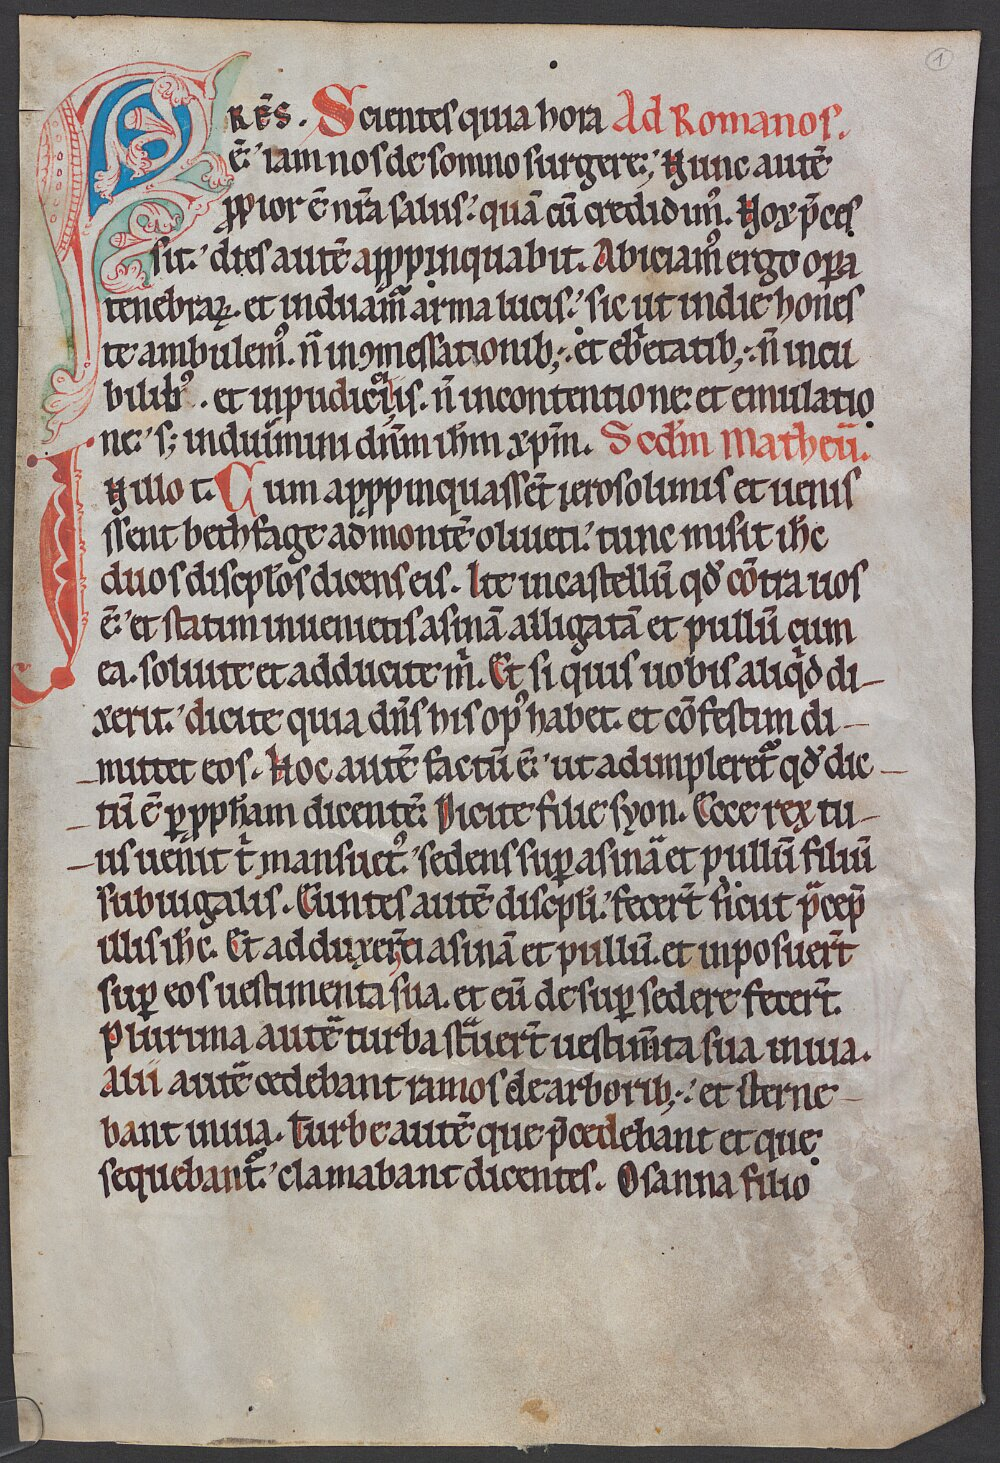 1
FRēS. Scientes quia hora Ad Romanos.
ē: iam nos de somno surgere; Nunc autē
ꝓpior ē nr̄a salus: quā cū credidim᷒. Nox p̄ces
sit: dies autē appropinquabit. Abiciam᷒ ergo oꝑa
tenebraꝝ. et induam᷒ arma lucis: sic ut in die hones
te ambulem᷒. n̄ in ꝯmessationib;. et eb̓etatib;. n̄ in cu
bilib᷒. et inpudicitiis. n̄ in contentione: et emulatio
ne: s; induimini dn̄m ih̄m xp̄m. Scdm̄ Matheū.
IN illo t̄. Cum appropinquass&t ierosolimis et uenis
sent bethfage ad montē oliueti: tunc misit ih̄c
duos discipl̄os dicens eis. Ite in castellū qd̄ cōtra uos
ē: et statim inuenietis asinā alligatā et pullū cum
ea. soluite et adducite m̄. Et si quis uobis aliqd̄ di-
xerit: dicite quia dn̄s his op᷒ habet. et cōfestim di-
mittet eos. Hoc autē factū ē: ut adimpleret᷑ qd̄ dic-
tū ē ꝑ ꝓph̄am dicentē: Dicite filie syon. Ecce rex tu-
us uenit t̄ mansuet᷒. sedens suꝑ asinā et pullū filiū
subiugalis. Euntes autē discipl̄i: fecer̄t sicut p̄cep̄
illis ih̄c. Et adduxer̄t asinā et pullū. et inposuer̄t
suꝑ eos uestimenta sua. et eū desuꝑ sedere fecer̄t.
Plurima autē turba st̄uer̄t uestim̄ta sua in uia.
Alii autē cedebant ramos de arborib;: et sterne-
bant in uia. Turbe autē que p̄cedebant et que
sequebant᷑: clamabant dicentes. Osanna filio